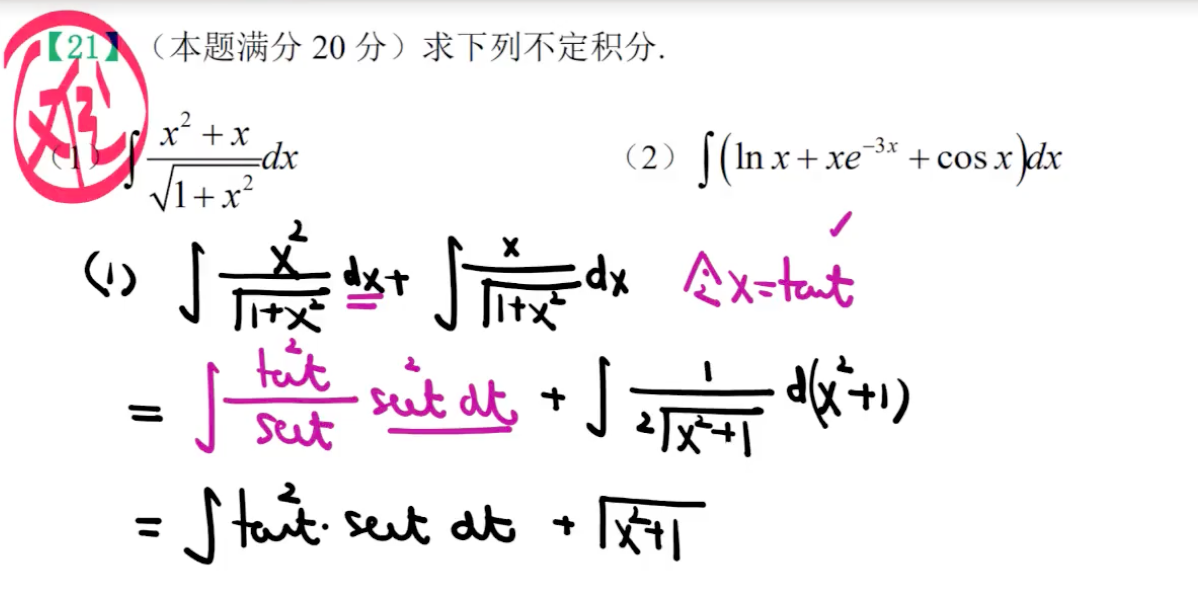 【21】（本题满分 20 分）求下列不定积分.
难
（1）∫ (x² + x)/√(1 + x²) dx （2）∫(ln x + xe^(-3x) + cos x)dx
(1) ∫ x²/√(1+x²) dx + ∫ x/√(1+x²) dx 令x=tant ✓
= ∫ tan²t/sect sec²t dt + ∫ 1/(2√(x²+1)) d(x²+1)
= ∫ tan²t · sect dt + √(x²+1)